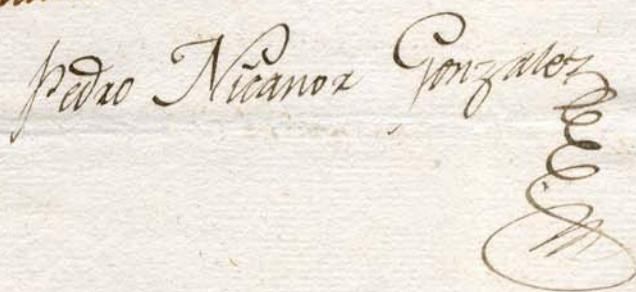 Pedro Nicanor Gonzalez